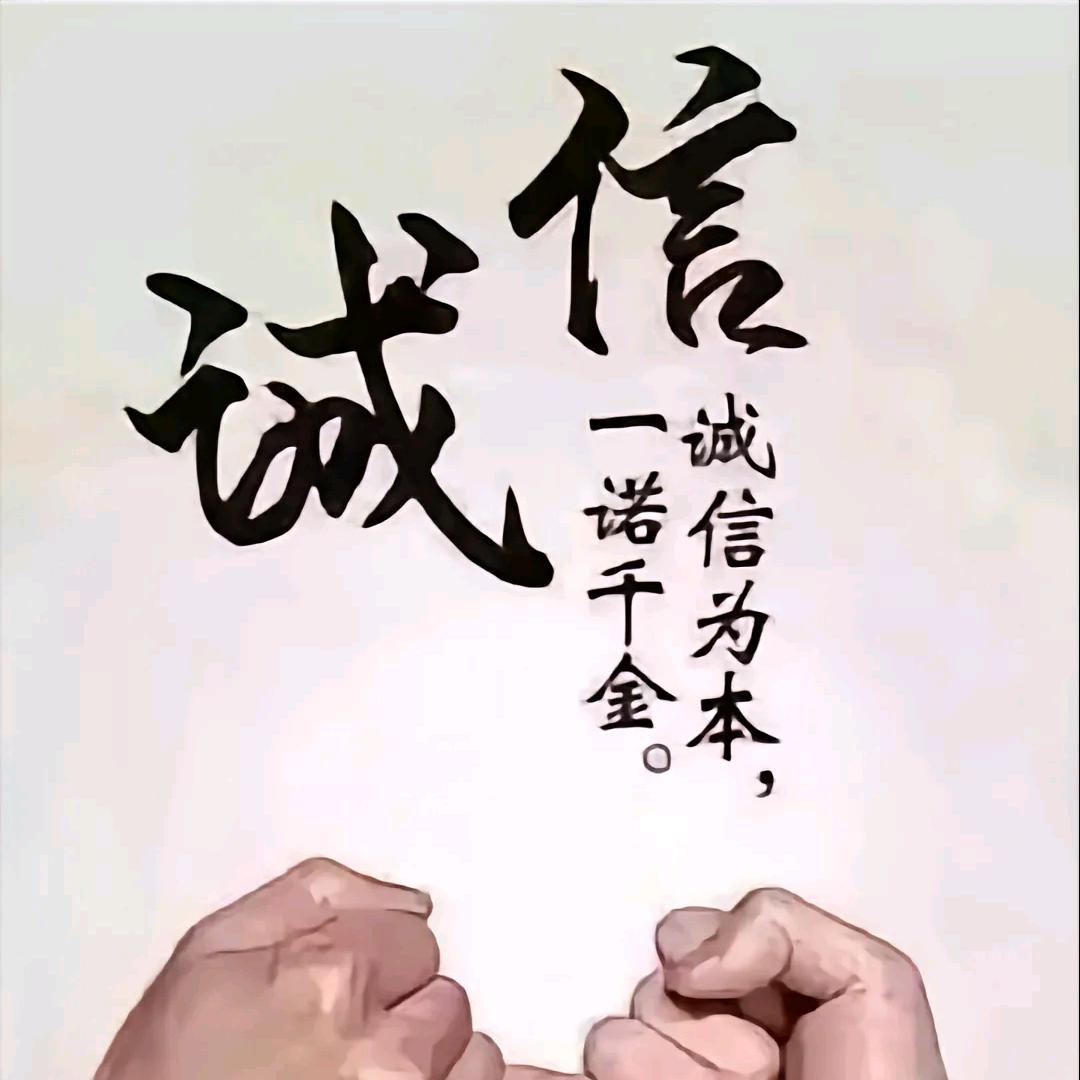 诚信
诚信为本，
一诺千金。